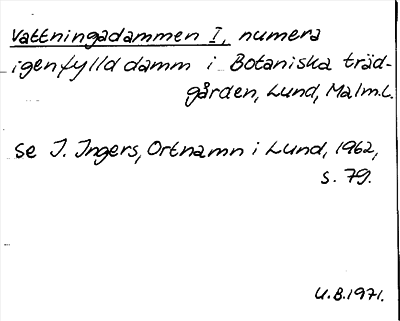 Vattningadammen I, numera
igenfylld damm i Botaniska träd-
gården, Lund, Malm.L.
se I. Ingers, Ortnamn i Lund, 1962,
s. 79.
U.B. 1971.